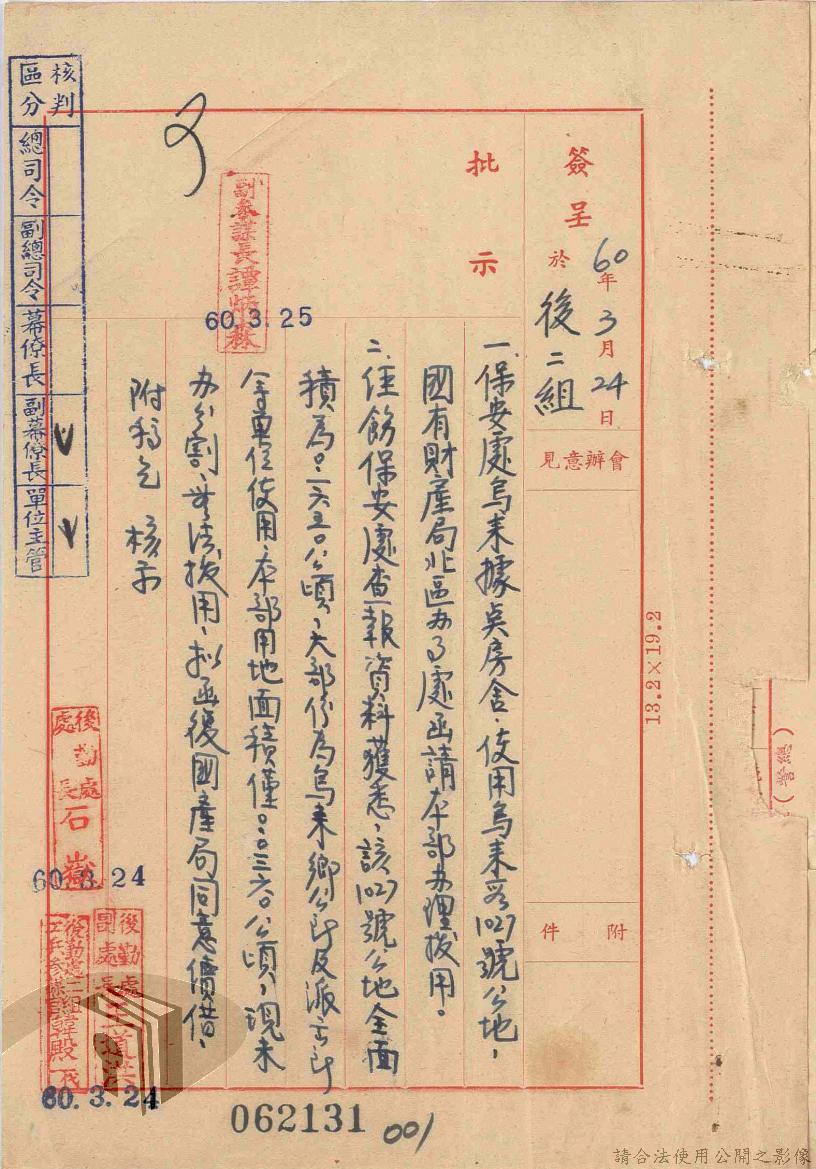 簽呈 60年3月24日
於 後二組
會辦意見
附件
批示
一、保安處烏來據點房舍,使用烏來段1027號公地,
國有財產局北區办事處函請本部办理撥用。
二、經飭保安處查報資料獲悉,該1027號公地全面
積為0.一六五0公頃,大部份為烏來鄉公所及派出所
等單位使用,本部用地面積僅0.0三六0公頃,現未
办分割,無法撥用,拟函復國產局同意價借,
附稿乞 核示
副參謀長譚
60.3.25
核判區分
總司令
副總司令
幕僚長
副幕僚長
單位主管
後勤處處長石嶽
60.3.24
後勤處副處長
後勤處二組
參謀官韓殿
60.3.24
062131
001
13.2×19.2
(總營)
請合法使用公開之影像